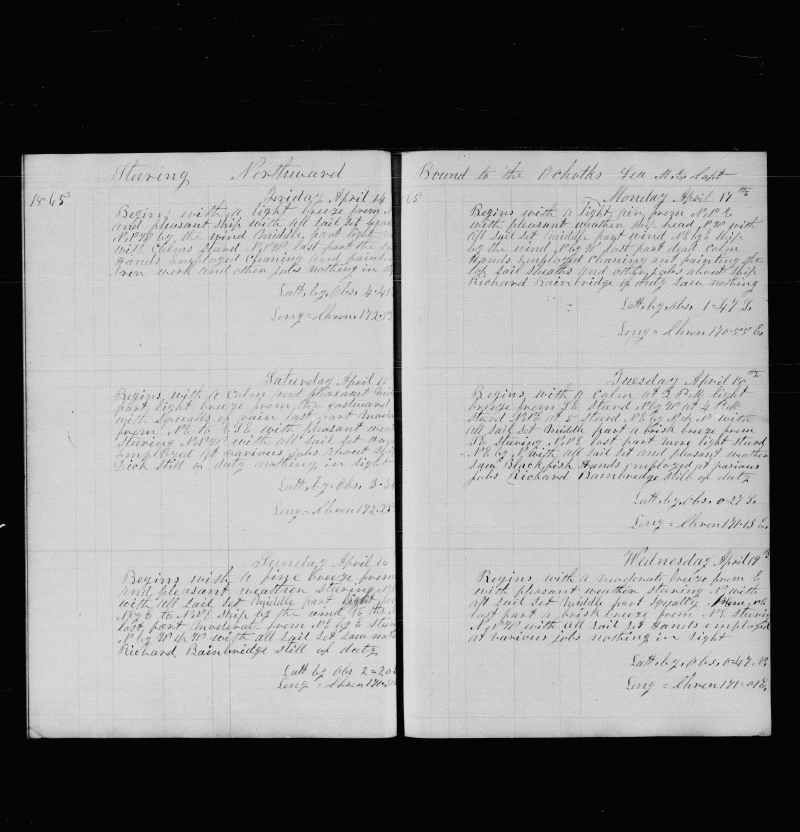 Steering Northward
1865
Friday April 14
Begins with a light breeze from
and pleasant ship with all sail set
N.N.W by the wind middle part light
with Calms Stand N.N.W last part the
Hands Employed Cleaning and
Iron work and other Jobs nothing in
Latt, by, Obs, 4=4
Long = Chron, 172=5
Saturday April 15
Begins, with a Calm and pleasant
part light breeze from the Eastward
with Squalls of rain last part
from N.E to E.S.E with pleasant
Steering N.N.W with all sail set
employed at various Jobs about
Dick still of duty nothing in sight
Latt, by, Obs, 3=
Long = Chron 172=25
Sunday April 16
Begins with a fine breeze from
and pleasant weather stering
with all sail set middle part light
to N.N.E Ship by the wind to the
last part moderate from N.E by E
N by W 1/2 W with all sail set saw
Richard Bainbridge still of duty
Latt by Obs 2=20
Long = Chron 170=
Bound to the Ochotks Sea
Monday April 17th
Begins with a light air from N.N.E
with pleasant weather ship head N.W with
all sail set middle part wind N.E by E ship
by the wind N by W last part dead Calm
Hands Employed Cleaning and painting the
top sail sheaths and other Jobs about ship
Richard Bainbridge of duty saw nothing
Latt, by, obs, 1=47 S.
Long = Chron 170=55 E.
Tuesday April 18th
Begins, with a calm at 2 P.M light
breeze from S.E Stand N by W at 4 P.M
Stand N.N.W at 5 Stand N.E by N by W with
all sail set middle part a brisk breeze from
S.E Steering N.N.E last part more light stand
N.E by N with all sail set and pleasant weather
Saw Blackfish Hands Employed at various
Jobs Richard Bainbridge Still of duty
Latt, by, Obs, 0=27 S.
Long = Chron 171=15 E.
Wednesday April 19th
Begins with a moderate breeze from E
with pleasant weather stering N with
all sail set middle part Squally
last part a brisk breeze from N.E stering
N.N.W with all sail set Hands employed
at various jobs nothing in sight
Latt, by, Obs, 0=47 N
Long = Chron 171=01 E.